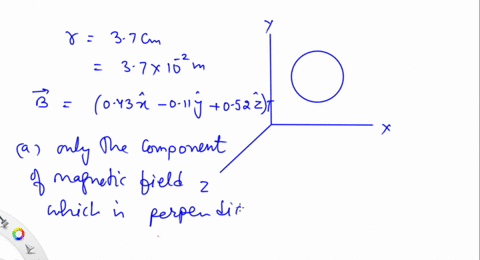 r = 3.7 cm
= 3.7 × 10⁻² m
B⃗ = (0.43x̂ − 0.11ŷ + 0.52ẑ)T
(a) only The component
of magnetic field
which is perpendi
y
x
z